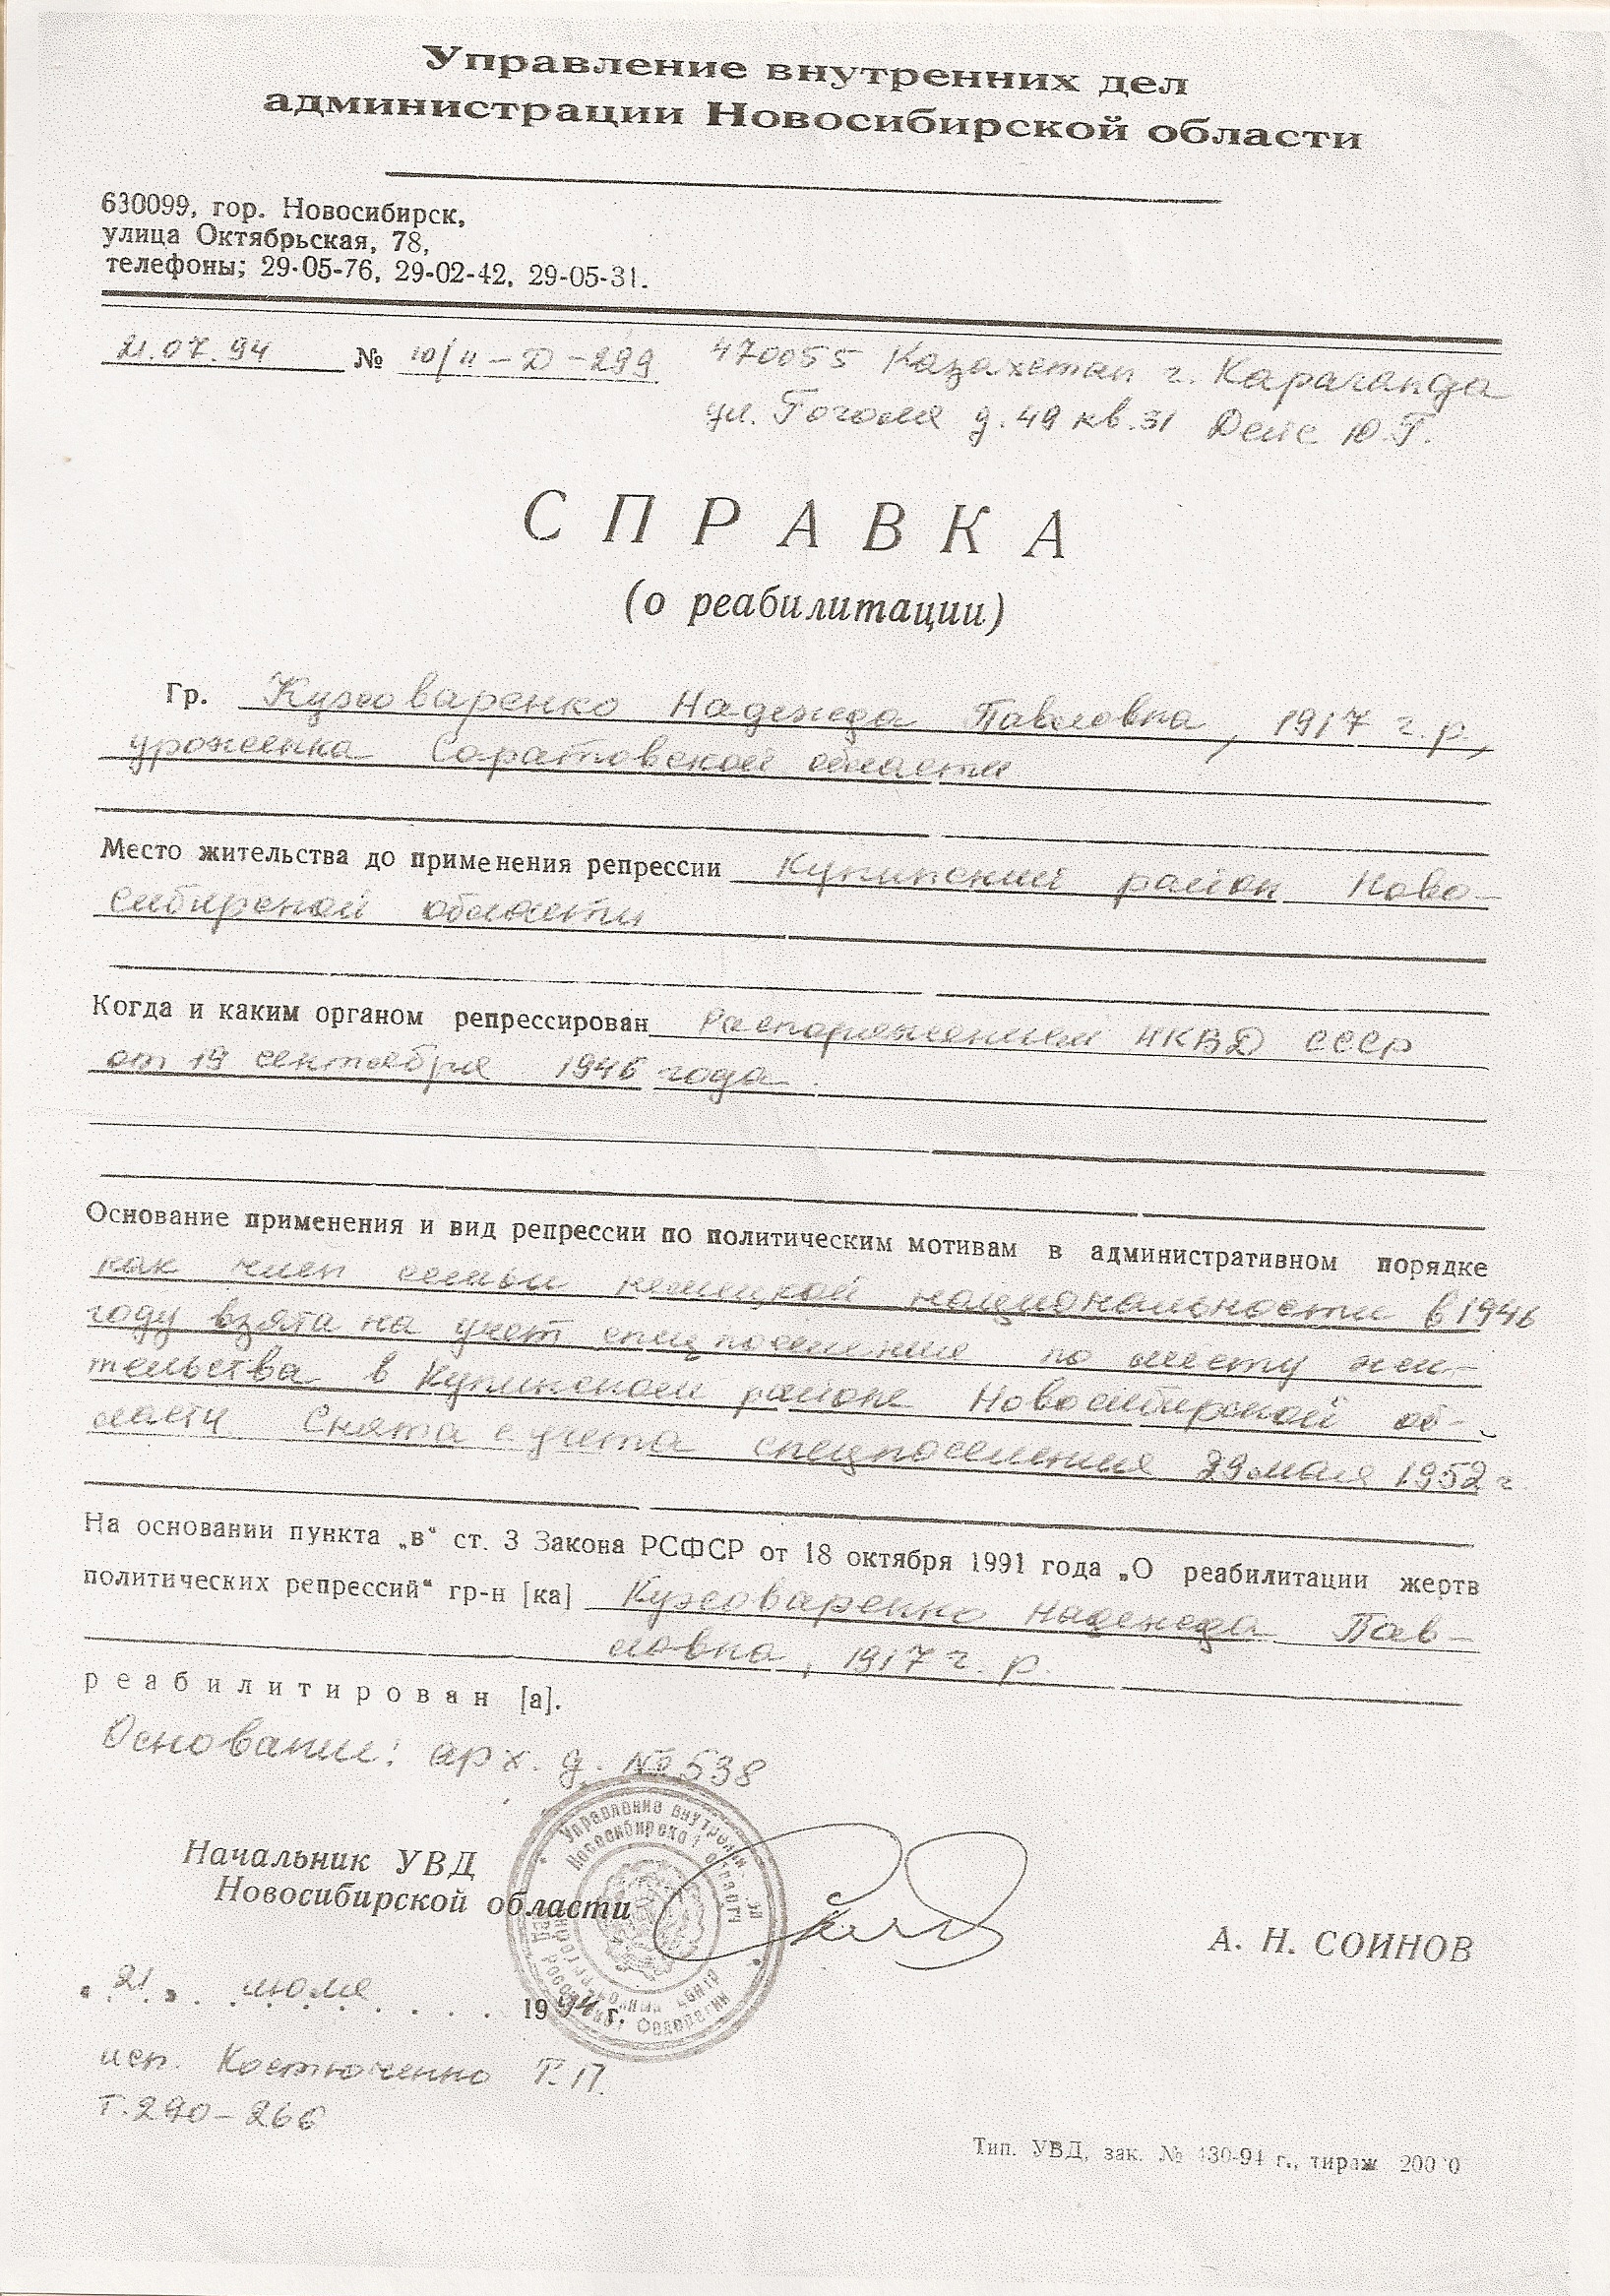 Управление внутренних дел
администрации Новосибирской области
630099, гор. Новосибирск,
улица Октябрьская, 78,
телефоны; 29-05-76, 29-02-42, 29-05-31.
21.07.94 № 10/11-Д-299 470055 Казахстан г. Караганда
ул. Гоголя д. 49 кв. 31 Дейс Ю.Г.
СПРАВКА
(о реабилитации)
Гр. Кужоваренко Надежда Павловна, 1917 г.р.,
уроженка Саратовской области
Место жительства до применения репрессии Купинский район Ново-
сибирской области
Когда и каким органом репрессирован Распоряжением НКВД СССР
от 19 сентября 1946 года.
Основание применения и вид репрессии по политическим мотивам в административном порядке
как член семьи немецкой национальности в 1946
году взята на учет спецпоселения по месту жи-
тельства в Купинском районе Новосибирской об-
ласти Снята с учета спецпоселения 29 мая 1952 г.
На основании пункта „в“ ст. 3 Закона РСФСР от 18 октября 1991 года „О реабилитации жертв
политических репрессий“ гр-н [ка] Кужоваренко Надежда Пав-
ловна, 1917 г. р.
реабилитирован [а].
Основание: арх. д. № 538
Начальник УВД
Новосибирской области
А. Н. СОИНОВ
„21„ июля 1994 г.
исп. Костюченко Т.П.
т. 290-266
Тип. УВД, зак. № 430-94 г., тираж